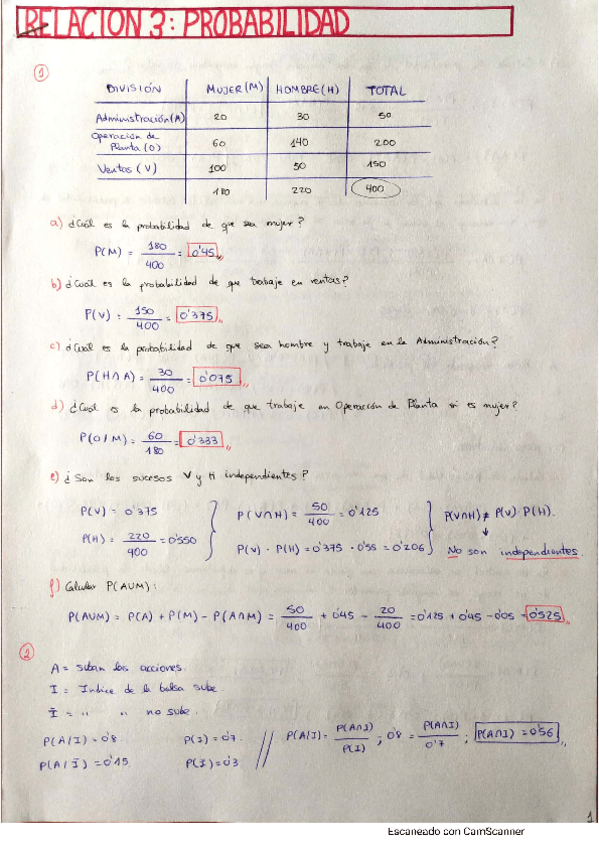 RELACION 3: PROBABILIDAD
1
DIVISIÓN MUJER(M) HOMBRE(H) TOTAL
Administración(A) 20 30 50
Operación de
Planta(O) 60 140 200
Ventas (V) 100 50 150
180 220 400
a) ¿Cuál es la probabilidad de que sea mujer?
P(M) = 180/400 = 0'45
b) ¿Cuál es la probabilidad de que trabaje en ventas?
P(V) = 150/400 = 0'375
c) ¿Cuál es la probabilidad de que sea hombre y trabaje en la Administración?
P(H∩A) = 30/400 = 0'075
d) ¿Cuál es la probabilidad de que trabaje en Operación de Planta si es mujer?
P(O/M) = 60/180 = 0'333
e) ¿Son los sucesos V y H independientes?
P(V) = 0'375
P(H) = 220/400 = 0'550
P(V∩H) = 50/400 = 0'125
P(V) · P(H) = 0'375 · 0'55 = 0'206
P(V∩H) ≠ P(V) · P(H).
↓
No son independientes
f) Calcular P(AUM):
P(AUM) = P(A) + P(M) - P(A∩M) = 50/400 + 0'45 - 20/400 = 0'125 + 0'45 - 0'05 = 0'525
2
A = suban las acciones.
I = Indice de la bolsa sube
Ī = " " no sube.
P(A/I) = 0'8. P(I) = 0'7. // P(A/I) = P(A∩I)/P(I) ; 0'8 = P(A∩I)/0'7 ; P(A∩I) = 0'56
P(A/Ī) = 0'15 P(Ī) = 0'3
1
Escaneado con CamScanner